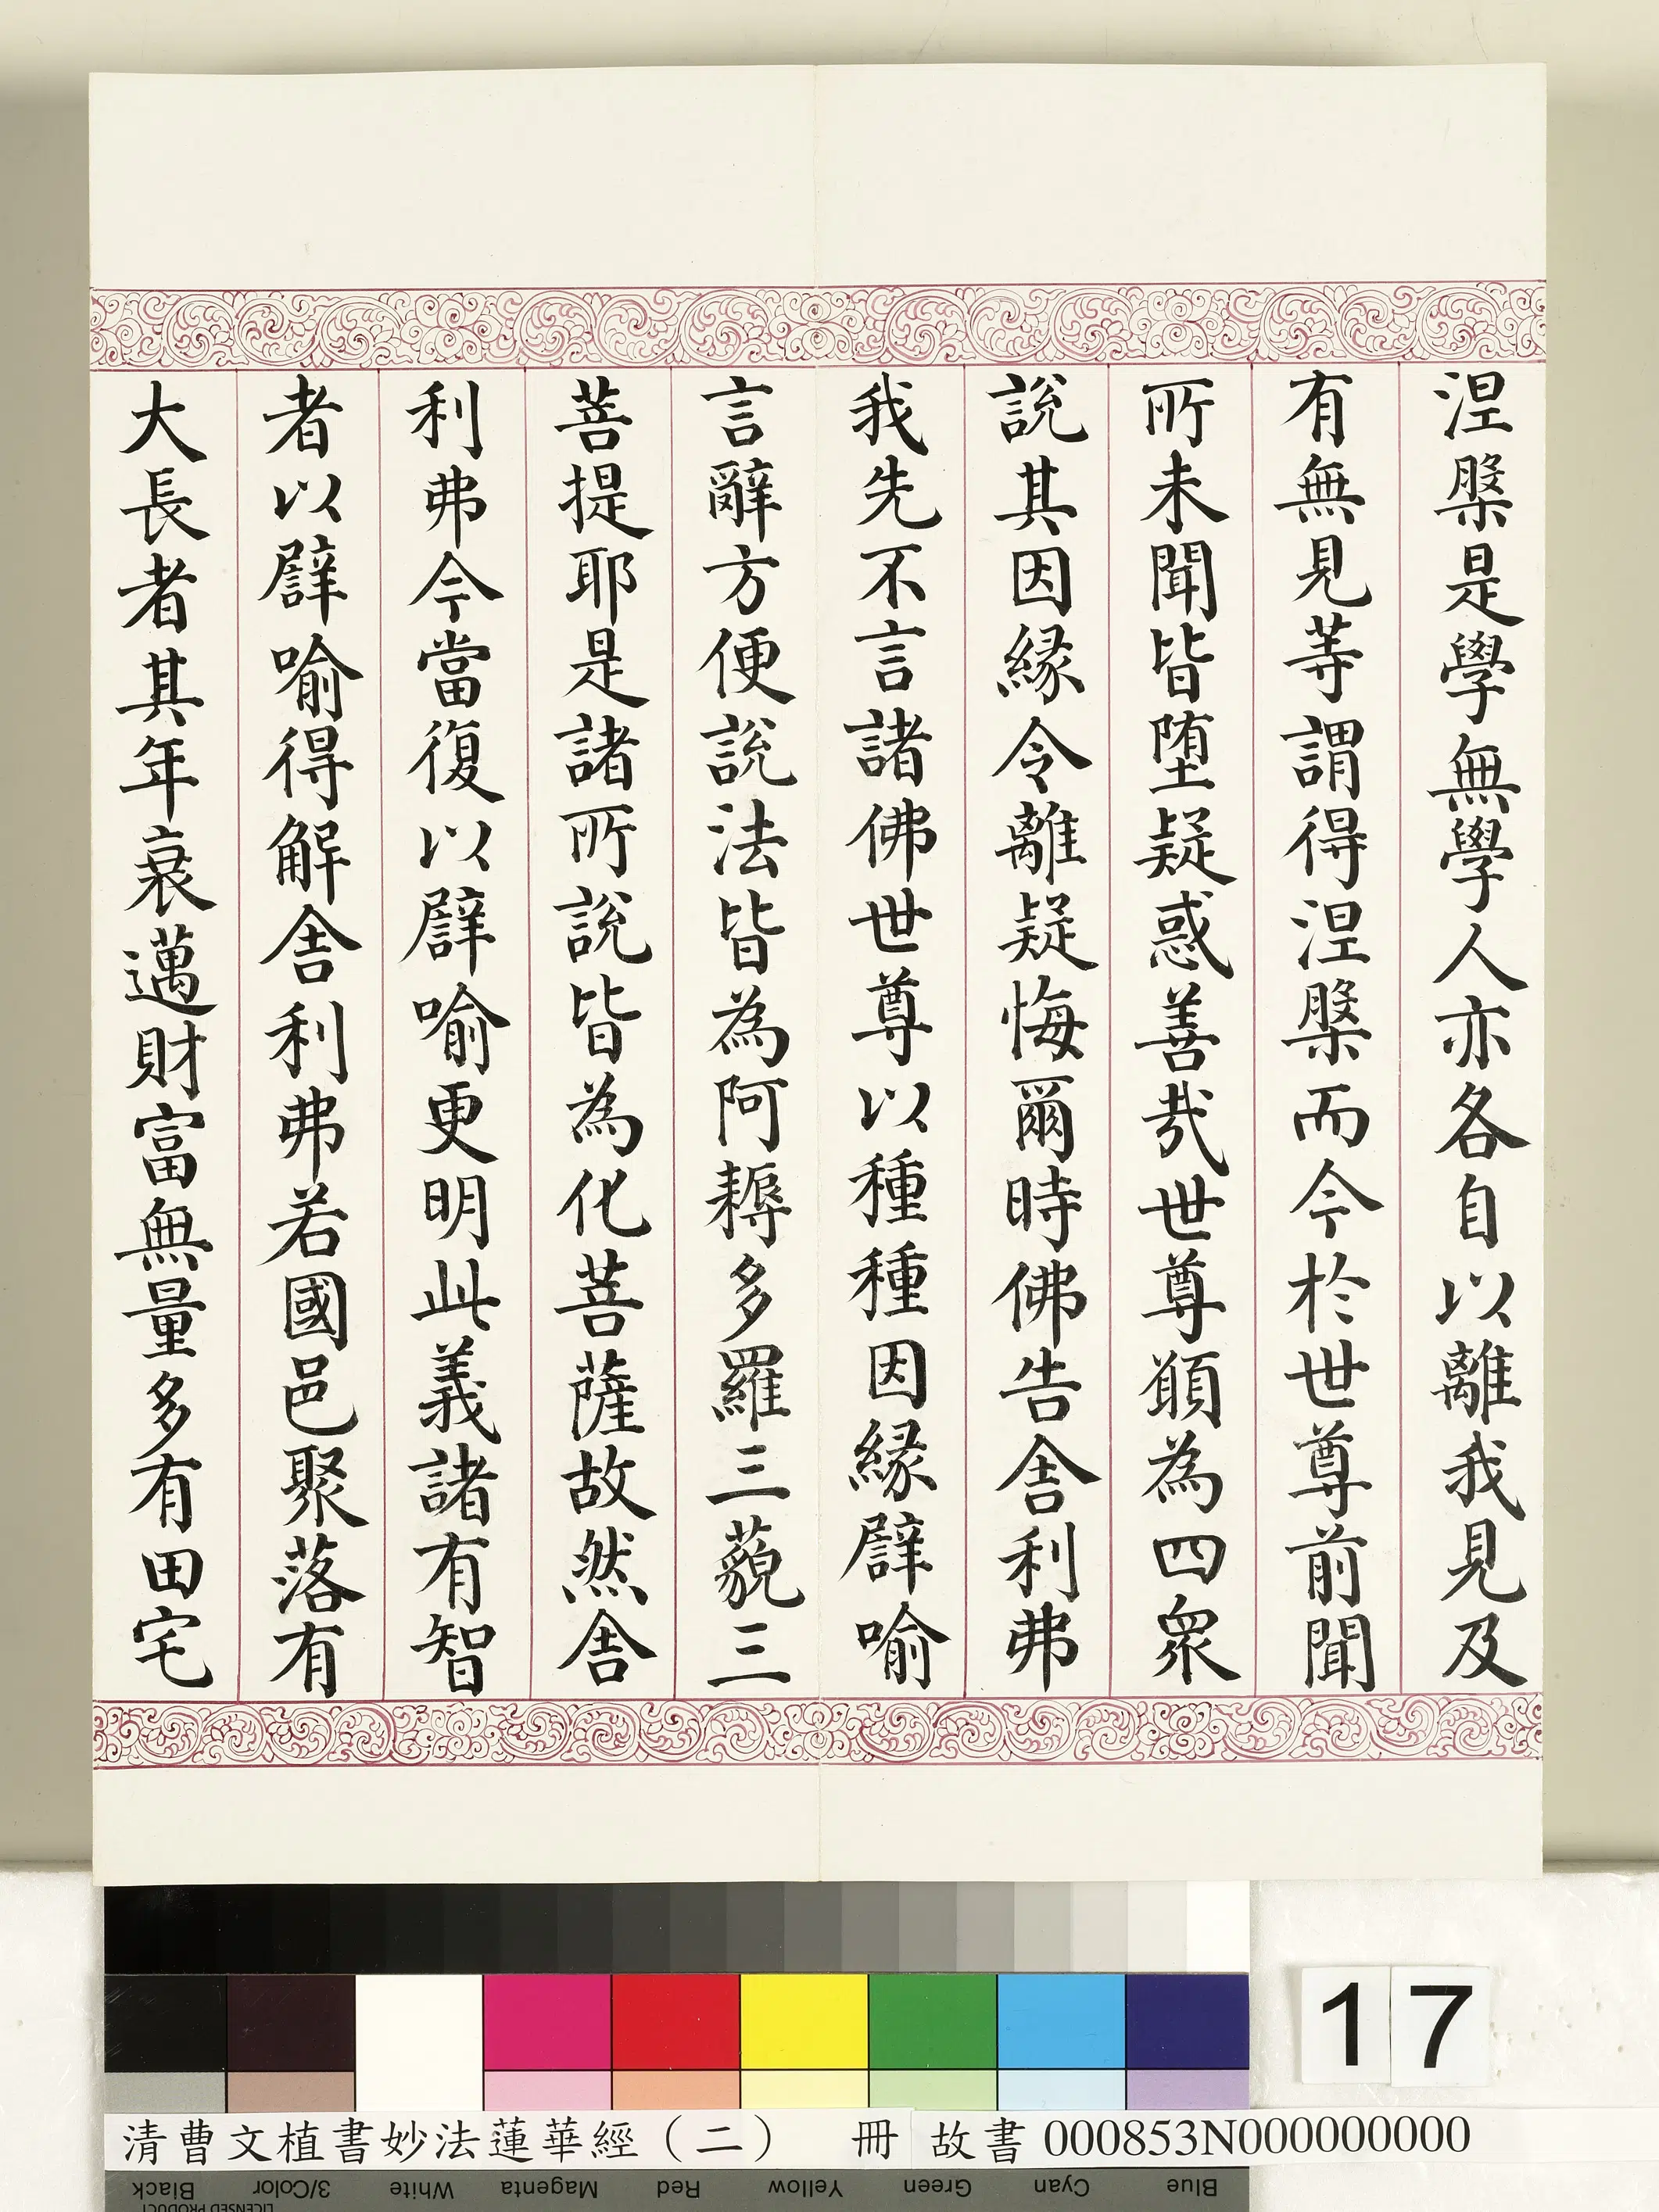 涅槃是學無學人亦各自以離我見及
有無見等謂得涅槃而今於世尊前聞
所未聞皆堕疑惑善哉世尊願為四衆
說其因緣令離疑悔爾時佛告舍利弗
我先不言諸佛世尊以種種因緣譬喻
言辭方便說法皆為阿耨多羅三藐三
菩提耶是諸所說皆為化菩薩故然舍
利弗今當復以譬喻更明此義諸有智
者以譬喻得解舍利弗若國邑聚落有
大長者其年衰邁財富無量多有田宅
17
清曹文植書妙法蓮華經（二） 冊 故書 000853N000000000
Black 3/Color White Magenta Red Yellow Green Cyan Blue
LICENSED PRODUCT